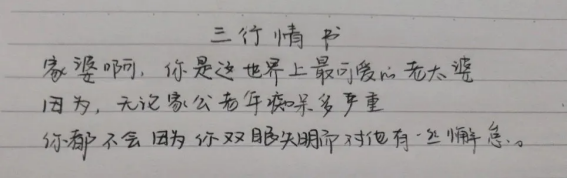 三行情书
家婆啊，你是这世界上最可爱的老太婆
因为，无论家公老年痴呆多严重
你都不会因为你双眼失明而对他有一丝懈怠。